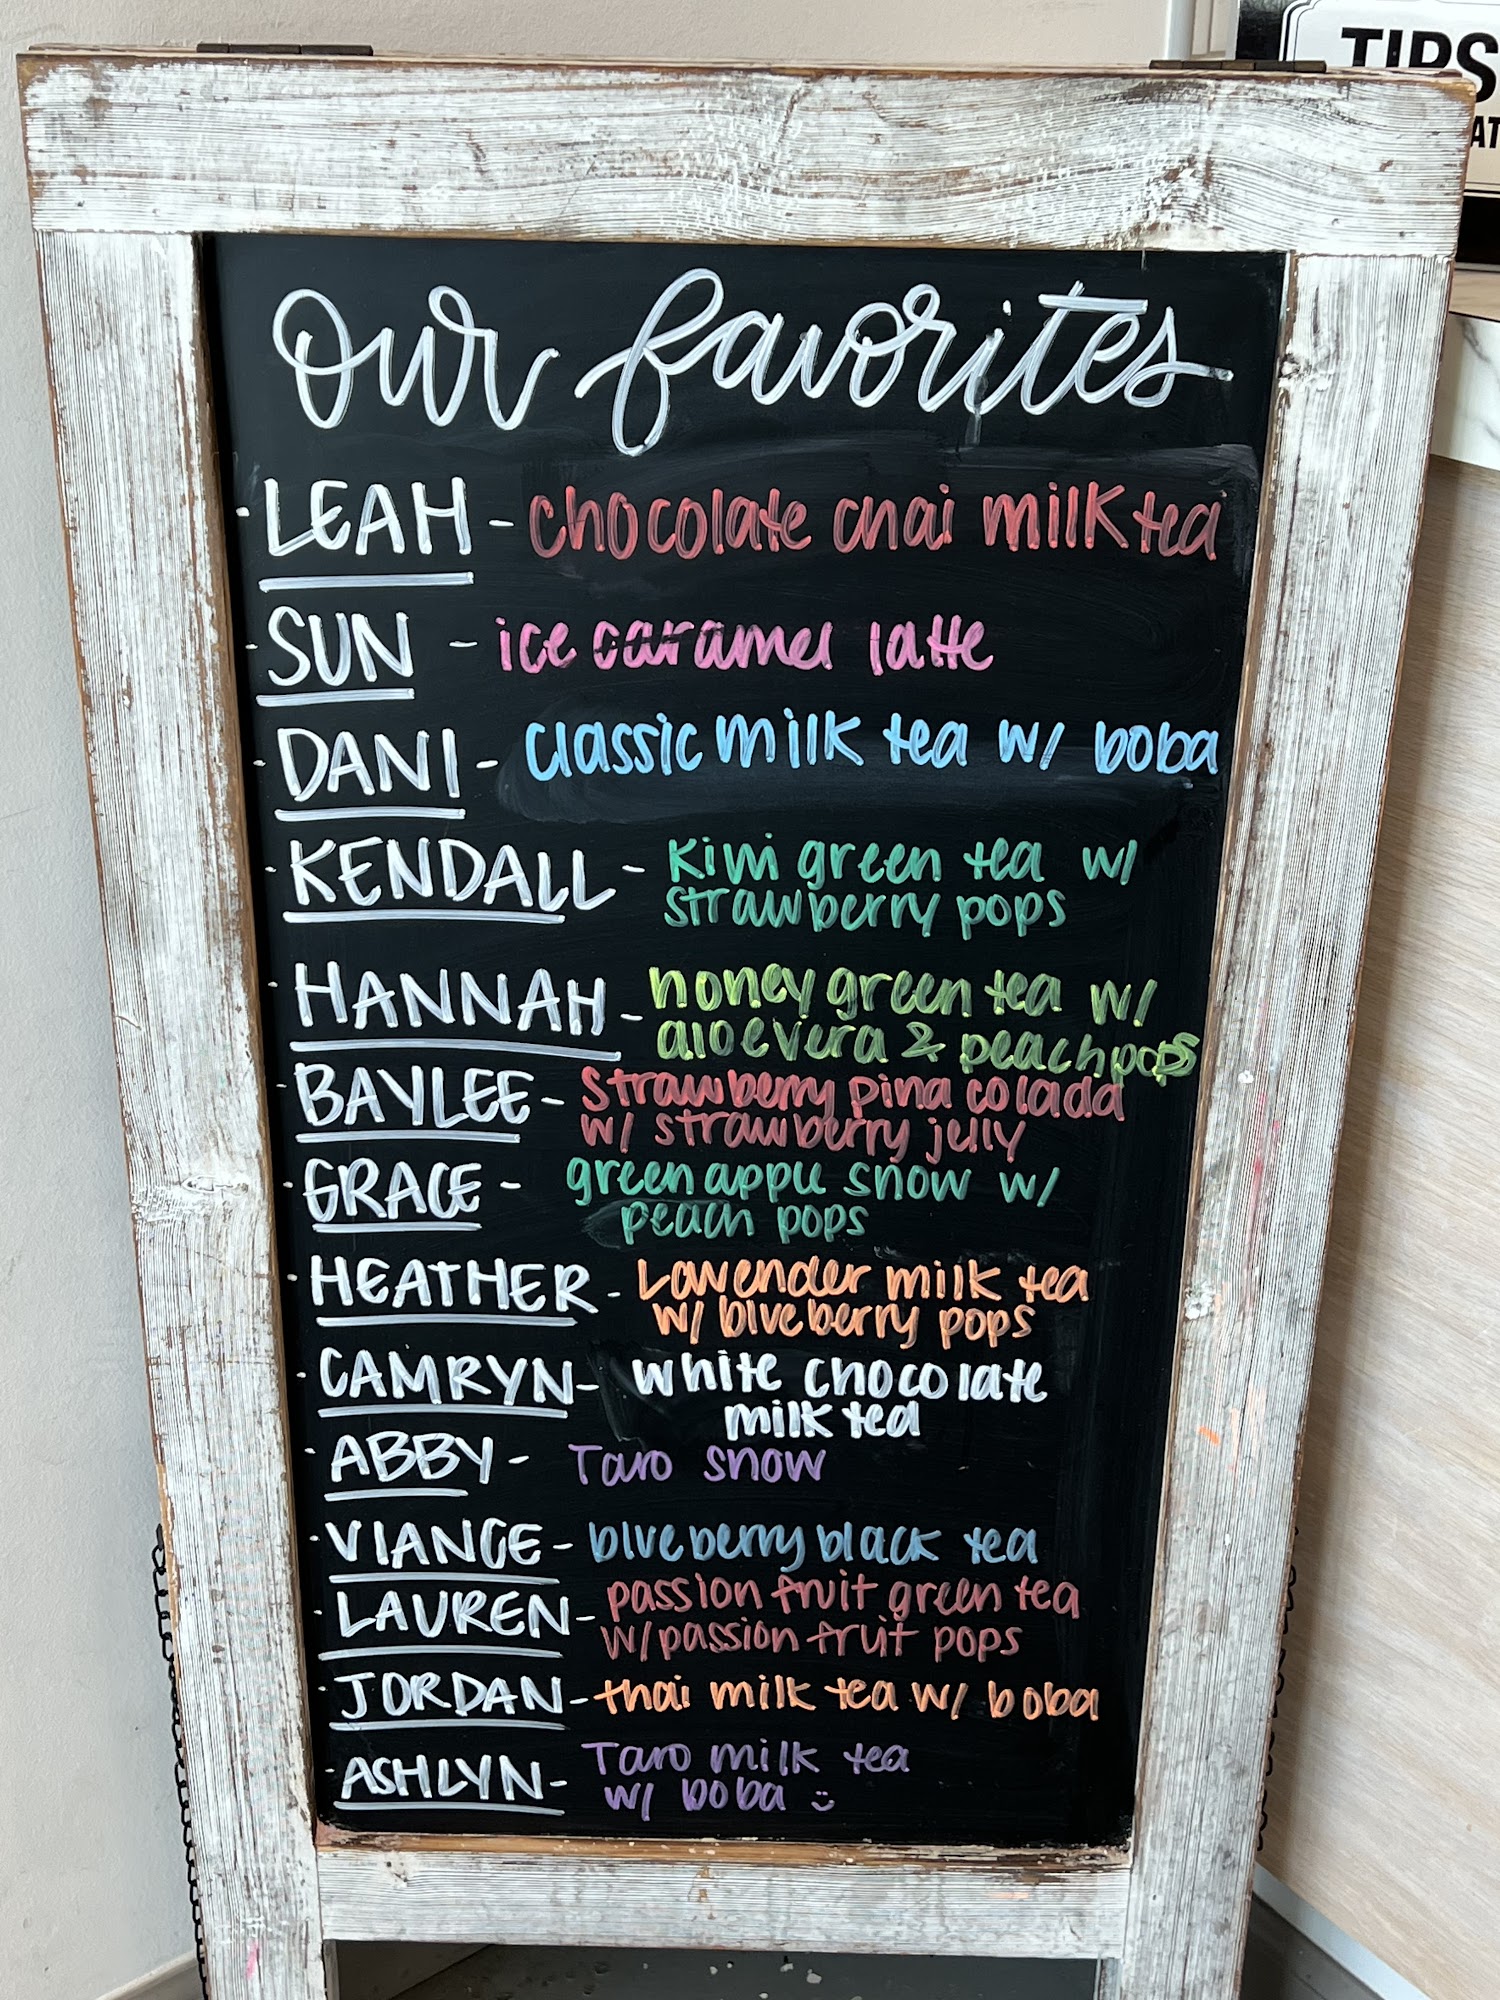 TIPS
our favorites
· LEAH - chocolate chai milk tea
· SUN - ice caramel latte
· DANI - classic milk tea w/ boba
· KENDALL - kiwi green tea w/
strawberry pops
· HANNAH - honey green tea w/
aloe vera & peach pops
· BAYLEE - strawberry pina colada
w/ strawberry jelly
· GRACE - green apple snow w/
peach pops
· HEATHER - Lavender milk tea
w/ blueberry pops
· CAMRYN - white chocolate
milk tea
· ABBY - Taro snow
· VIANCE - blueberry black tea
· LAUREN - passion fruit green tea
w/ passion fruit pops
· JORDAN - thai milk tea w/ boba
· ASHLYN - Taro milk tea
w/ boba :)